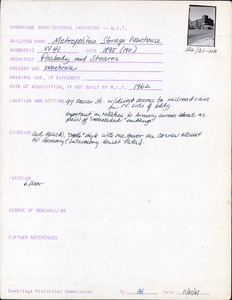 CAMBRIDGE ARCHITECTURAL INVENTORY -- M.I.T.
BUILDING NAME Metropolitan Storage Warehouse
NUMBER(S) W41 DATE 1895 (1911)
ARCHITECT Peabody and Stearns
PRESENT USE warehouse
ORIGINAL USE, IF DIFFERENT
DATE OF ACQUISITION, IF NOT BUILT BY M.I.T. 1962
LOCATION AND SETTING 97 Mass. St. w/direct access to railroad cars
on N. side of bldg.
Important in relation to Armory across street as
pair of "castellated" buildings
EXTERIOR Red Brick, "castle" style with one tower on corner closest
to Armory
INTERIOR
6 floors
DEGREE OF REMODELLING
FURTHER REFERENCES
Cambridge Historical Commission By Date